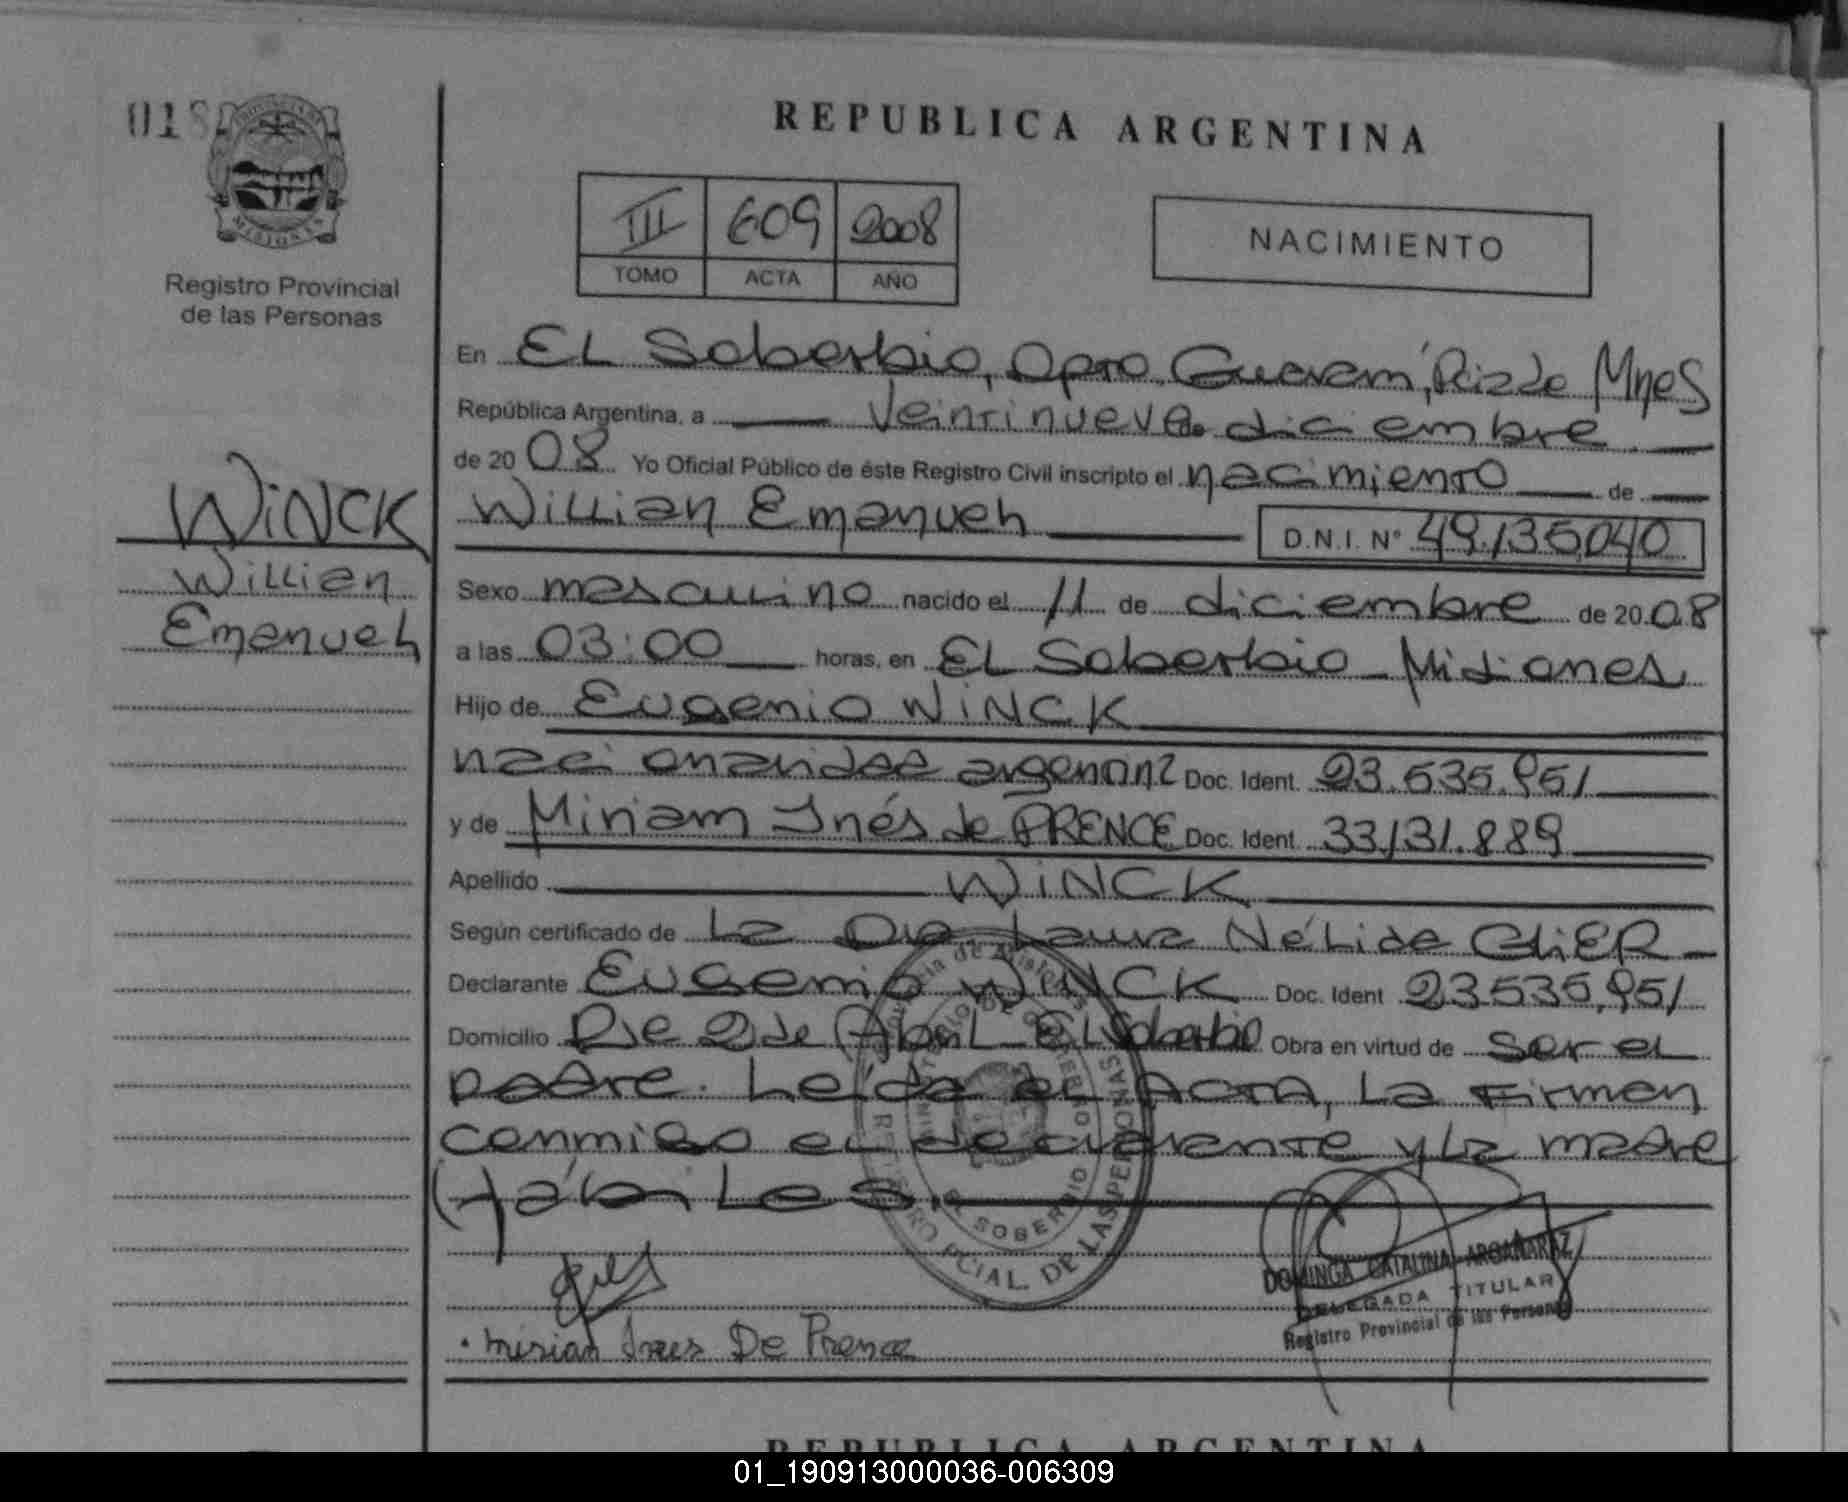 018
REPUBLICA ARGENTINA
III 609 2008
TOMO ACTA AÑO
NACIMIENTO
MISIONES
Registro Provincial
de las Personas
En EL Soberbio, Dpto. Guaraní, Pcia de Mnes
República Argentina, a veintinueve de diciembre
de 2008 Yo Oficial Público de éste Registro Civil inscripto el nacimiento de
Willian Emanuel D.N.I. N° 49.135.040
WiNCK
Willian
Emanuel
Sexo masculino nacido el 11 de diciembre de 2008
a las 03:00 horas, en EL Soberbio Misiones
Hijo de Eugenio WiNCK
nacionalidad argentina Doc. Ident. 23.535.951
y de Miriam Inés de PRENCE Doc. Ident. 33.131.889
Apellido WiNCK
Según certificado de La Dra Laura Nélida
Declarante Eugenio WiNCK Doc. Ident 23.535.951
Domicilio 2 de Abril EL Soberbio Obra en virtud de ser el
padre. Leída el ACTA, La Firman
conmigo el declarante y la madre
Hábiles.
MINISTERIO DE GOBIERNO
EL SOBERBIO
REGISTRO PCIAL. DE LAS PERSONAS
DOMINGA CATALINA ARGAÑARAZ
DELEGADA TITULAR
Registro Provincial de las Personas
Mirian Ines De Prence
REPUBLICA ARGENTINA
01_190913000036-006309